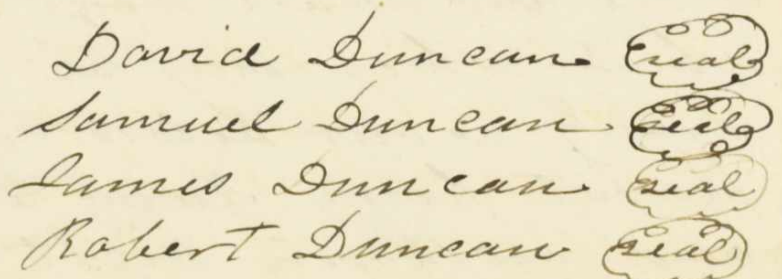 David Duncan seal
Samuel Duncan seal
James Duncan seal
Robert Duncan seal